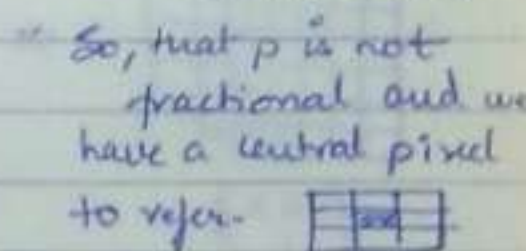 So, that p is not
fractional and we
have a central pixel
to refer.